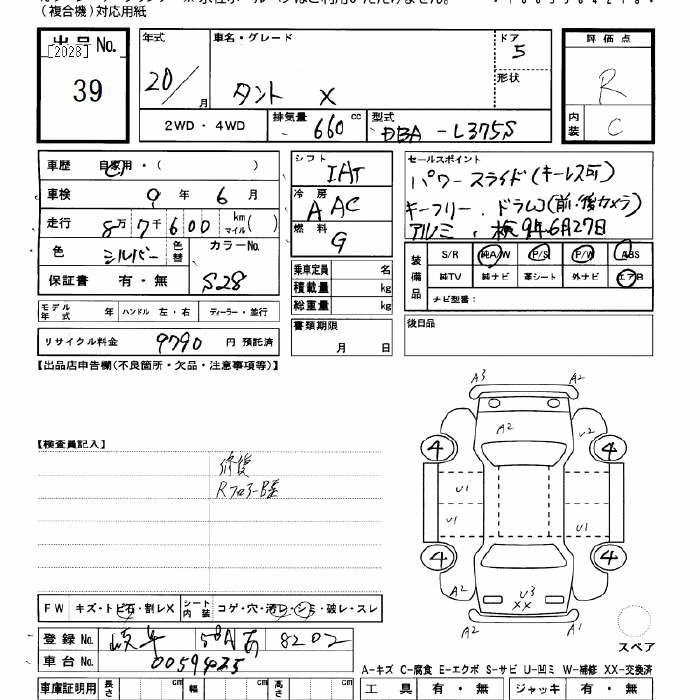 (複合機)対応用紙
出品No.
[2028]
39
年式
20/
月
車名・グレード
タント X
ドア
5
形状
2WD・4WD
排気量
660 cc
型式
DBA-L375S
評価点
R
内装
C
車歴 自家用・( )
車検 9 年 6 月
走行 8万 7千 600 km マイル( )
色 シルバー 色替
カラーNo.
S28
保証書 有・無
シフト
IAT
冷房
AAC
燃料
G
乗車定員 名
積載量 kg
総重量 kg
書類期限
月 日
セールスポイント
パワースライド(キーレス可)
キーフリー . ドラレコ(前・後カメラ)
アルミ . 検9年6月27日
装備品
S/R 純A/W P/S P/W ABS
純TV 純ナビ 革シート 外ナビ エアB
ナビ型番:
後日品
モデル年式 年 ハンドル 左・右 ディーラー・並行
リサイクル料金 9790 円 預託済
【出品店申告欄(不良箇所・欠品・注意事項等)】
【検査員記入】
修復
Rフロアー
A3 A2
A2 U2
4 4
U1
U1 U1
4 4
A2 U3 A2
XX
A2 A1
スペア
FW キズ・トビ石・割レX シート内装 コゲ・穴・汚レ・シミ・破レ・スレ
登録No. 岐阜 58 あ 8202
車台No. 0059425
A-キズ C-腐食 E-エクボ S-サビ U-凹ミ W-補修 XX-交換済
車庫証明用 長さ cm 幅 cm 高さ cm
工具 有・無 ジャッキ 有・無